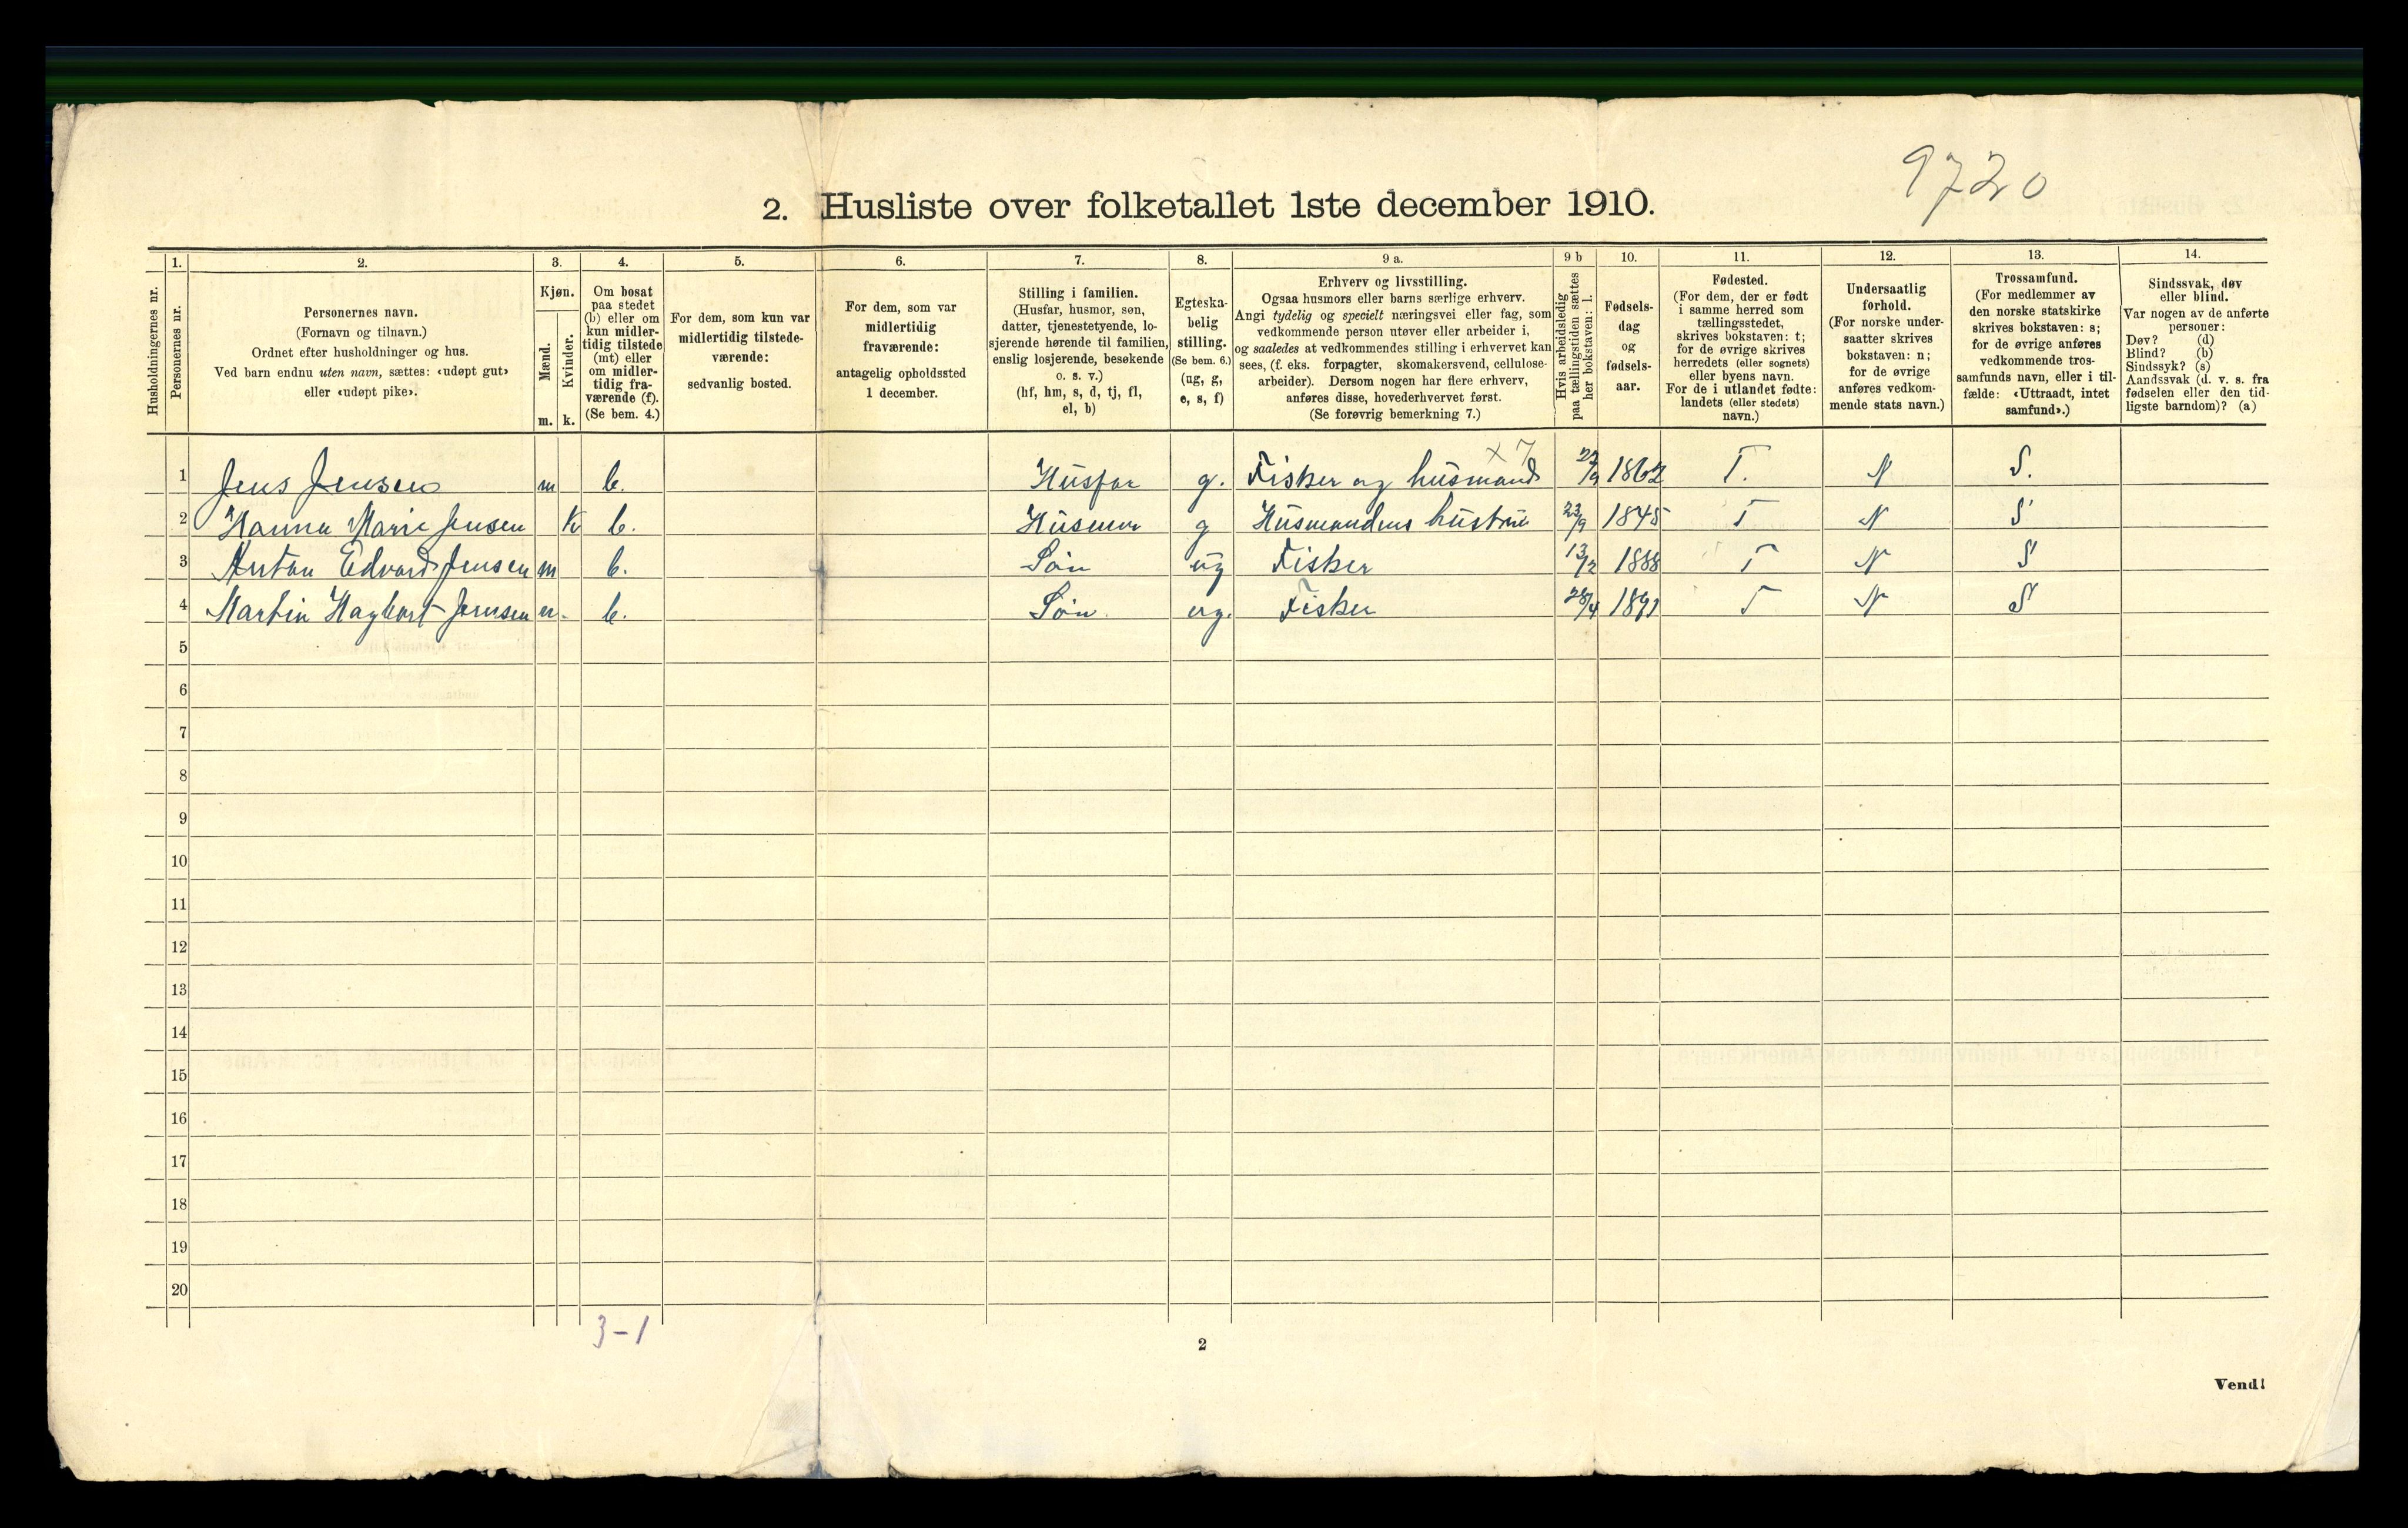 9720
2. Husliste over folketallet 1ste december 1910.
Husholdningernes nr.
1.
Personernes nr.
2.
Personernes navn.
(Fornavn og tilnavn.)
Ordnet efter husholdninger og hus.
Ved barn endnu uten navn, sættes: «udøpt gut»
eller «udøpt pike».
3.
Kjøn.
Mænd.
m.
Kvinder.
k.
4.
Om bosat
paa stedet
(b) eller om
kun midler-
tidig tilstede
(mt) eller
om midler-
tidig fra-
værende (f).
(Se bem. 4.)
5.
For dem, som kun var
midlertidig tilstede-
værende:
sedvanlig bosted.
6.
For dem, som var
midlertidig
fraværende:
antagelig opholdssted
1 december.
7.
Stilling i familien.
(Husfar, husmor, søn,
datter, tjenestetyende, lo-
sjerende hørende til familien,
enslig losjerende, besøkende
o. s. v.)
(hf, hm, s, d, tj, fl,
el, b)
8.
Egteska-
belig
stilling.
(Se bem. 6.)
(ug, g,
e, s, f)
9 a.
Erhverv og livsstilling.
Ogsaa husmors eller barns særlige erhverv.
Angi tydelig og specielt næringsvei eller fag, som
vedkommende person utøver eller arbeider i,
og saaledes at vedkommendes stilling i erhvervet kan
sees, (f. eks. forpagter, skomakersvend, cellulose-
arbeider). Dersom nogen har flere erhverv,
anføres disse, hovederhvervet først.
(Se forøvrig bemerkning 7.)
9 b
Hvis arbeidsledig
paa tællingstiden sættes
her bokstaven: l.
10.
Fødsels-
dag
og
fødsels-
aar.
11.
Fødested.
(For dem, der er født
i samme herred som
tællingsstedet,
skrives bokstaven: t;
for de øvrige skrives
herredets (eller sognets)
eller byens navn.
For de i utlandet fødte:
landets (eller stedets)
navn.)
12.
Undersaatlig
forhold.
(For norske under-
saatter skrives
bokstaven: n;
for de øvrige
anføres vedkom-
mende stats navn.)
13.
Trossamfund.
(For medlemmer av
den norske statskirke
skrives bokstaven: s;
for de øvrige anføres
vedkommende tros-
samfunds navn, eller i til-
fælde: «Uttraadt, intet
samfund».)
14.
Sindssvak, døv
eller blind.
Var nogen av de anførte
personer:
Døv? (d)
Blind? (b)
Sindssyk? (s)
Aandssvak (d. v. s. fra
fødselen eller den tid-
ligste barndom)? (a)
x 7
1 Jens Jensen m b. Husfar g. Fisker og husmand /9 1862 T. N S.
2 Hanna Marie Jensen Kv b. Husmor g Husmandens hustru 23/9 1845 T N S
3 Anton Edvard Jensen m b. Søn ug Fisker 13/2 1888 T N S
4 Martin Hagbart Jensen m. b. Søn. ug. Fisker 28/4 1891 T N S
5
6
7
8
9
10
11
12
13
14
15
16
17
18
19
20
3-1
2
Vend!